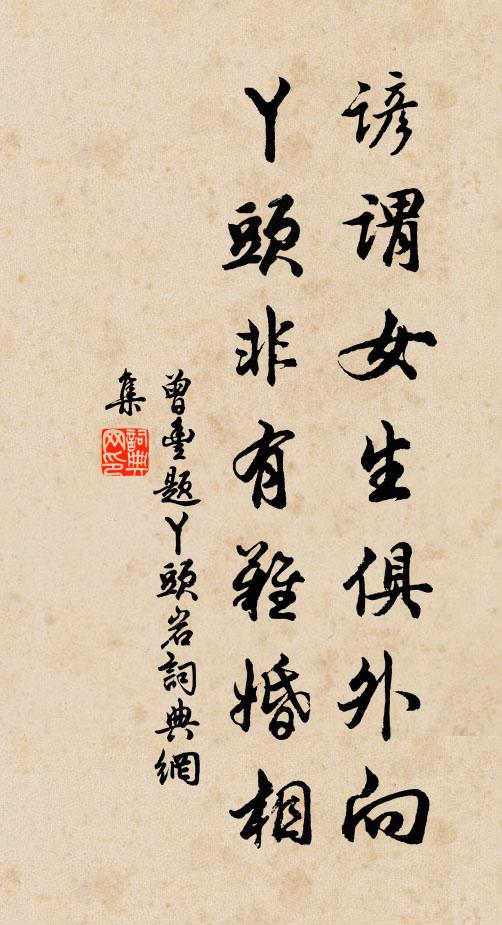 諺謂女生俱外向
丫頭非有難婚相
曾豐題丫頭岩詞典網
集
詞典
网印